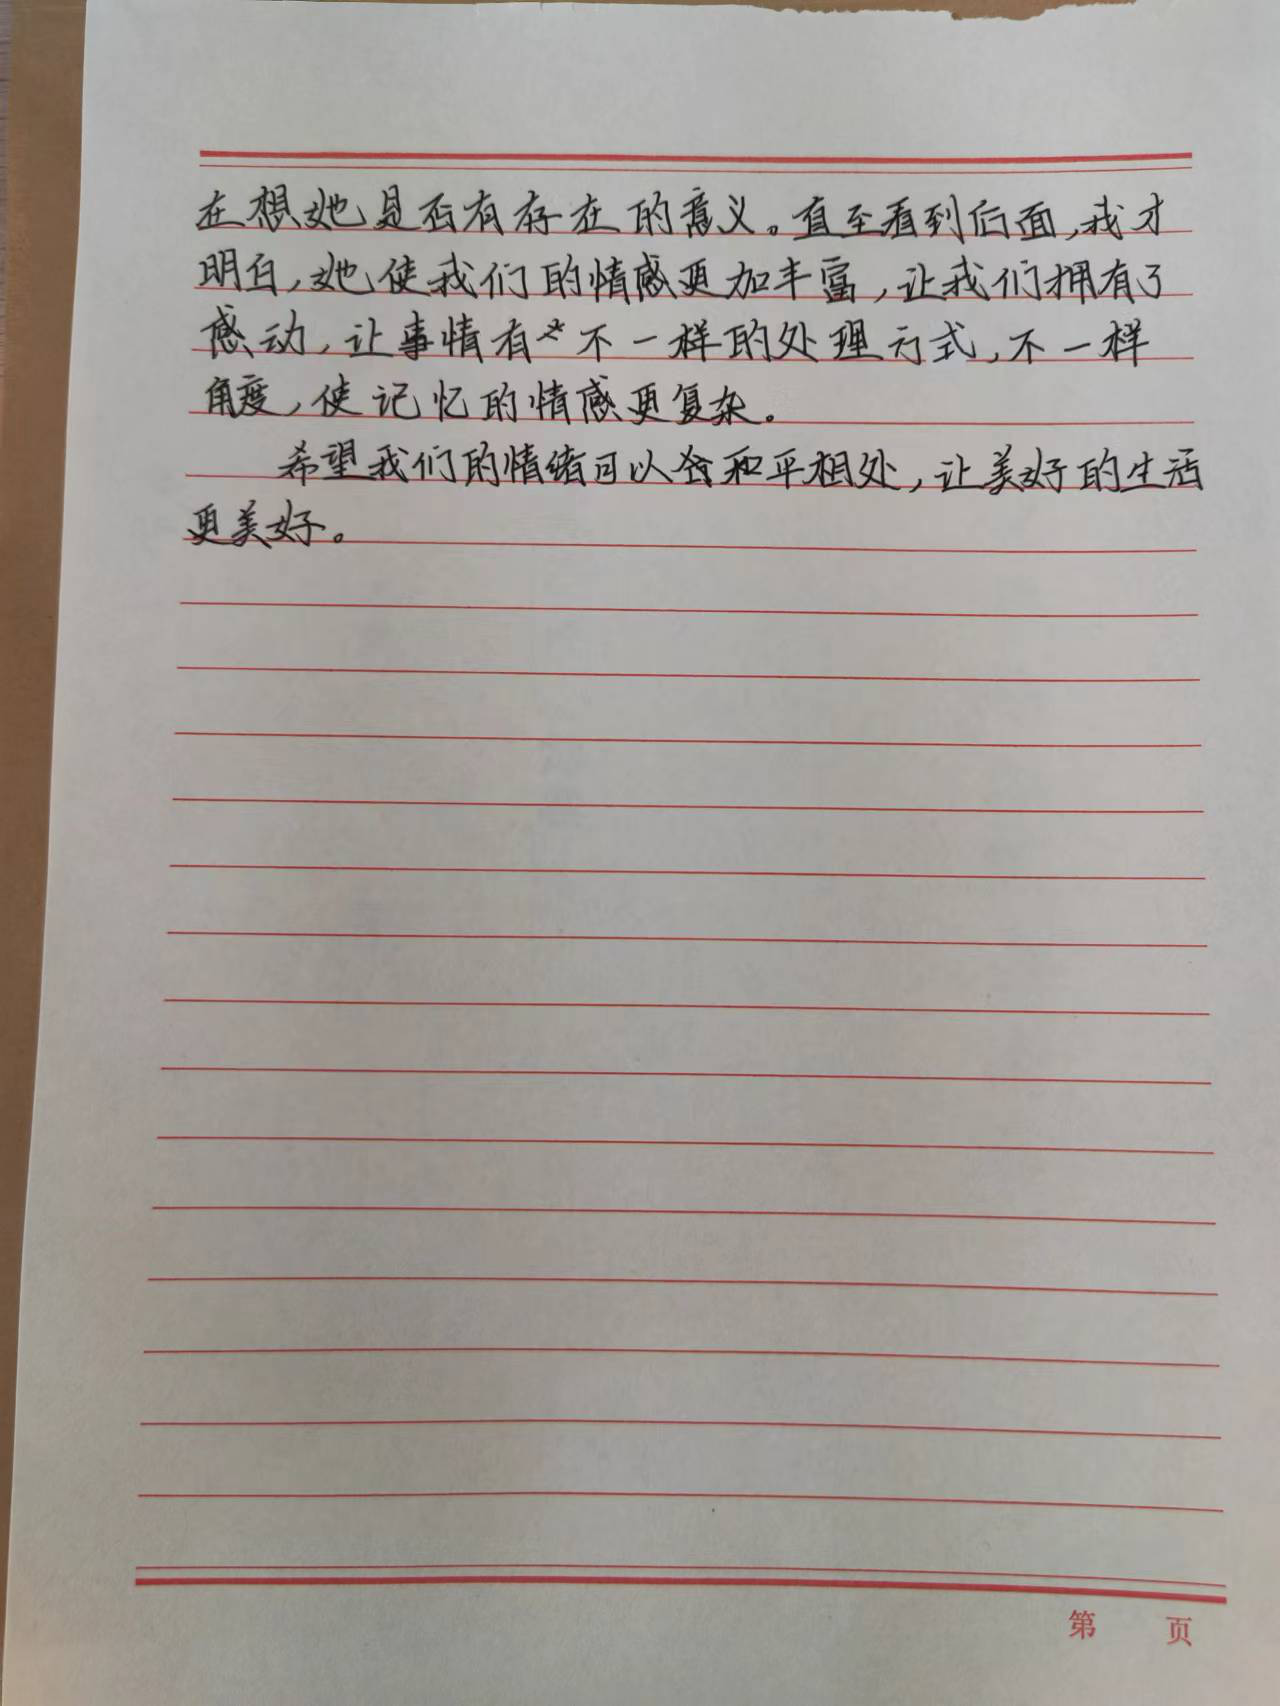 在想她是否有存在的意义。直至看到后面,我才
明白,她使我们的情感更加丰富,让我们拥有了
感动,让事情有不一样的处理方式,不一样
角度,使记忆的情感更复杂。
希望我们的情绪可以和平相处,让美好的生活
更美好。
第 页